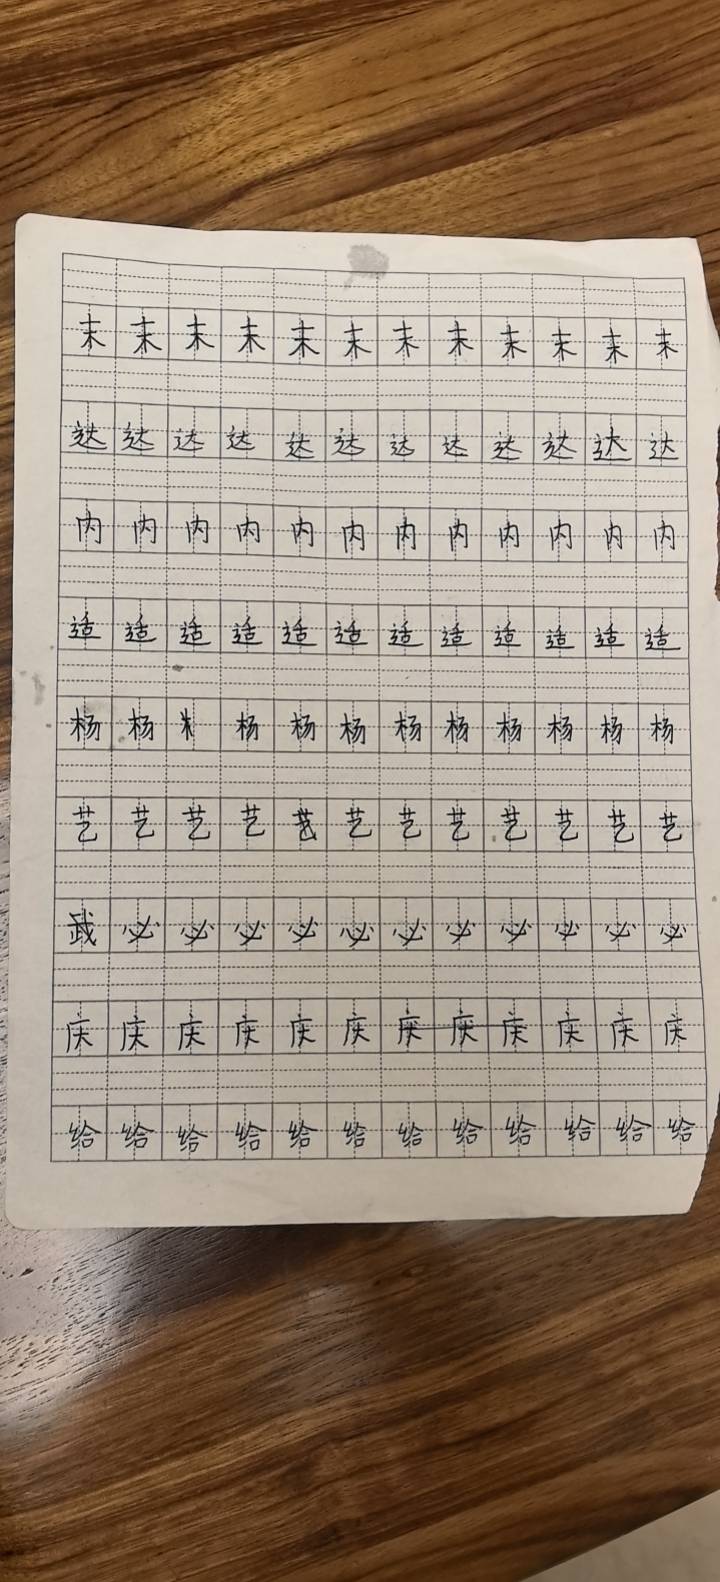 末末末末末末末末末末末末
达达达达达达达达达达达达
内内内内内内内内内内内内
适适适适适适适适适适适适
杨杨杨杨杨杨杨杨杨杨杨
艺艺艺艺艺艺艺艺艺艺艺
武必必必必必必必必必必必
庆庆庆庆庆庆庆庆庆庆庆庆
给给给给给给给给给给给给